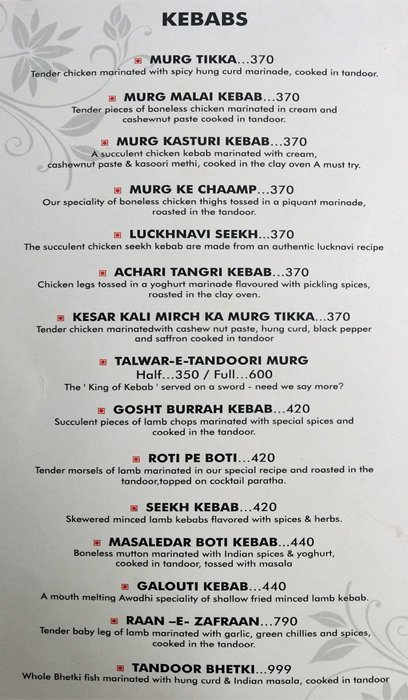 KEBABS
MURG TIKKA...370
Tender chicken marinated with spicy hung curd marinade, cooked in tandoor.
MURG MALAI KEBAB...370
Tender pieces of boneless chicken marinated in cream and
cashewnut paste cooked in tandoor.
MURG KASTURI KEBAB...370
A succulent chicken kebab marinated with cream,
cashewnut paste & kasoori methi, cooked in the clay oven A must try.
MURG KE CHAAMP...370
Our speciality of boneless chicken thighs tossed in a piquant marinade,
roasted in the tandoor.
LUCKHNAVI SEEKH...370
The succulent chicken seekh kebab are made from an authentic lucknavi recipe
ACHARI TANGRI KEBAB...370
Chicken legs tossed in a yoghurt marinade flavoured with pickling spices,
roasted in the clay oven.
KESAR KALI MIRCH KA MURG TIKKA...370
Tender chicken marinatedwith cashew nut paste, hung curd, black pepper
and saffron cooked in tandoor
TALWAR-E-TANDOORI MURG
Half...350 / Full...600
The ' King of Kebab ' served on a sword - need we say more?
GOSHT BURRAH KEBAB...420
Succulent pieces of lamb chops marinated with special spices and
cooked in the tandoor.
ROTI PE BOTI...420
Tender morsels of lamb marinated in our special recipe and roasted in the
tandoor,topped on cocktail paratha.
SEEKH KEBAB...420
Skewered minced lamb kebabs flavored with spices & herbs.
MASALEDAR BOTI KEBAB...440
Boneless mutton marinated with Indian spices & yoghurt,
cooked in tandoor, tossed with masala
GALOUTI KEBAB...440
A mouth melting Awadhi speciality of shallow fried minced lamb kebab.
RAAN –E- ZAFRAAN...790
Tender baby leg of lamb marinated with garlic, green chillies and spices,
cooked in the tandoor.
TANDOOR BHETKI...999
Whole Bhetki fish marinated with hung curd & Indian masala, cooked in tandoor